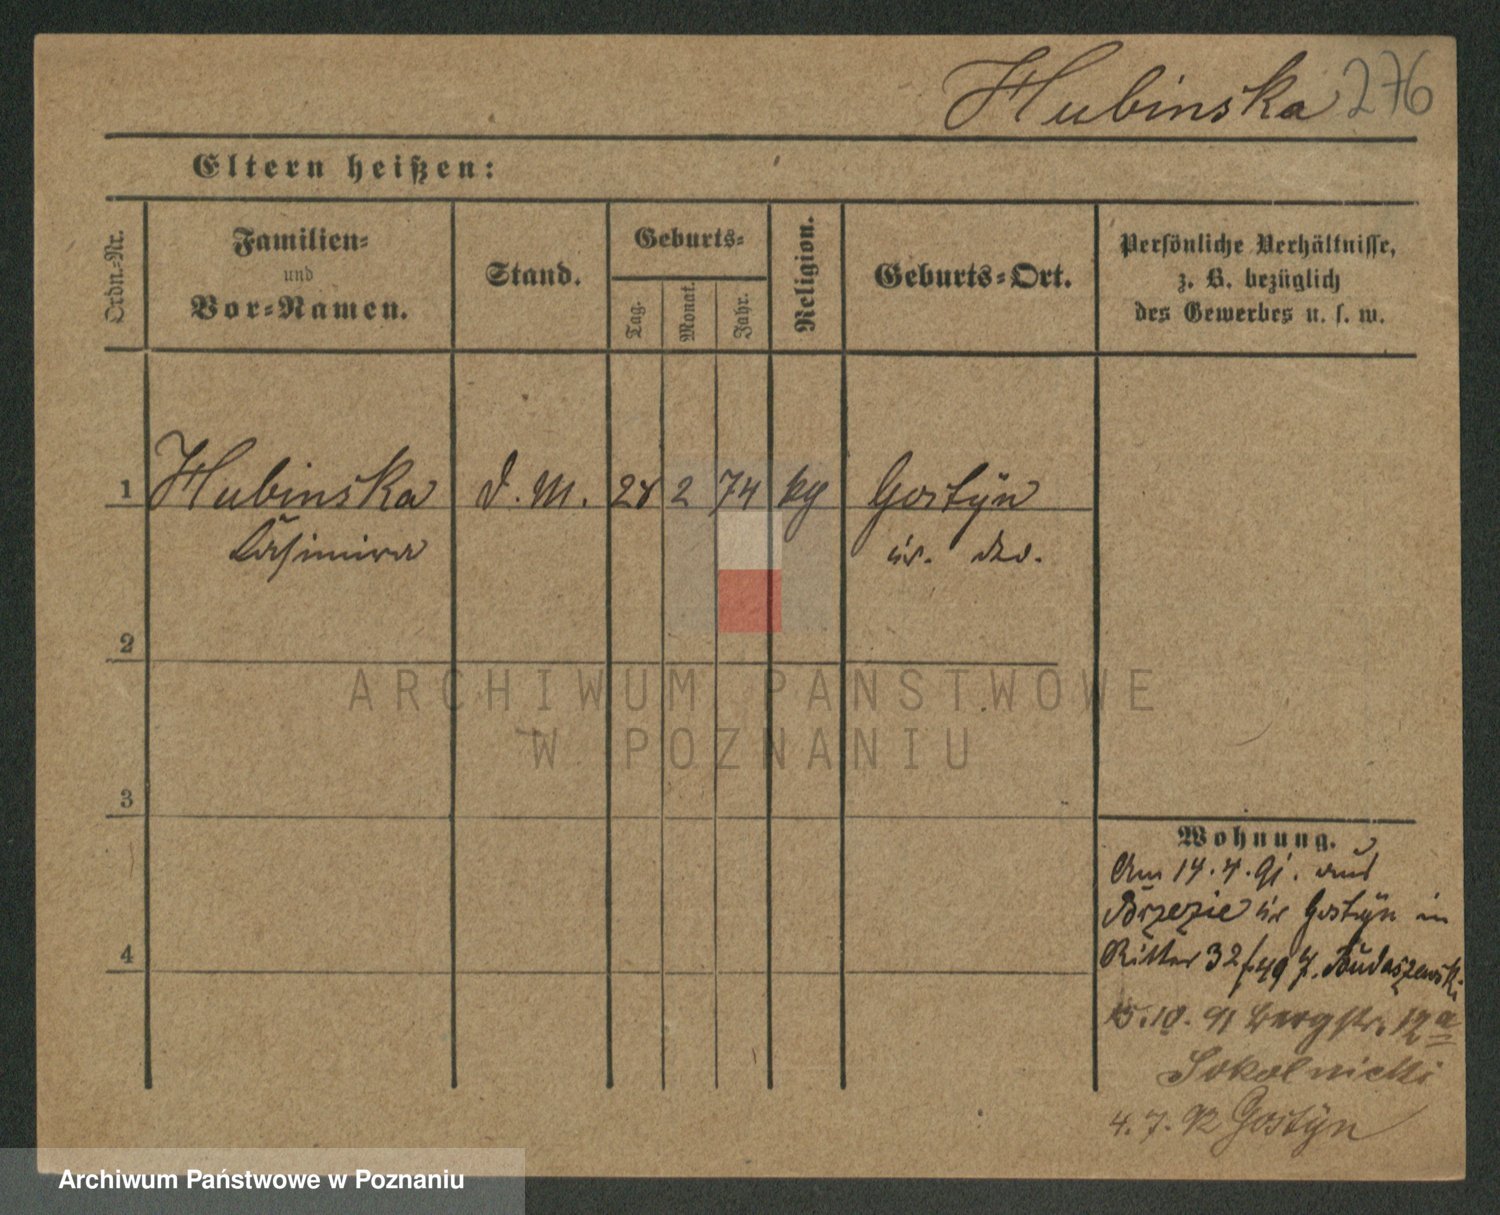 Hubinska 276
Eltern heißen:
Ordn.-Nr.
Familien-
und
Vor-Namen.
Stand.
Geburts-
Tag.
Monat.
Jahr.
Religion.
Geburts-Ort.
Persönliche Verhältnisse,
z. B. bezüglich
des Gewerbes u. s. w.
1 Hubinska d. M. 28 2 74 kg Gostÿn
Casimira kr. dto.
2
ARCHIWUM PAŃSTWOWE
W POZNANIU
3
Wohnung.
Am 14.4.91. aus
Brzezie kr Gostÿn in
Ritter 32/40 Budaszewski
4
15.10.91 Bergstr. 12a
Sokolnicki
4.7.92 Gostÿn
Archiwum Państwowe w Poznaniu